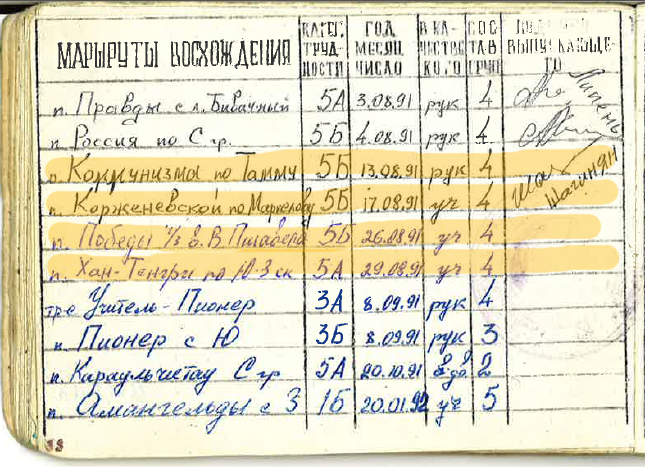 МАРШРУТЫ ВОСХОЖДЕНИЯ КАТЕГ. ТРУДНОСТИ ГОД МЕСЯЦ ЧИСЛО В КАЧЕСТВЕ КОГО СОСТАВ ГРУП. ВЫПУСКАЮЩЕГО
п. Правды с л. Бивачный 5А 3.08.91 рук 4 Лапень
п. Россия по С гр. 5Б 4.08.91 рук 4
п. Коммунизма по Тамму 5Б 13.08.91 рук 4
п. Корженевской по Маркелову 5Б 17.08.91 уч 4 Шагинян
п. Победы ч/з в. В. Пшавера 5Б 26.08.91 уч 4
п. Хан-Тенгри по Ю-З ск 5А 29.08.91 уч 4
тр-с Учитель - Пионер 3А 8.09.91 рук 4
п. Пионер с Ю 3Б 8.09.91 рук 3
п. Караульчитау С гр 5А 20.10.91 2
п. Амангельды с З 1Б 20.01.92 уч 5